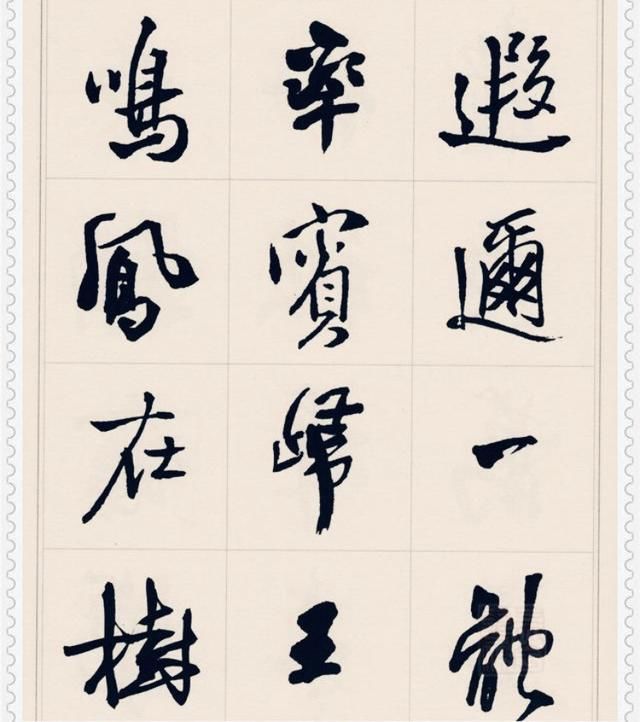 遐邇一體
率賓歸王
鳴鳳在樹